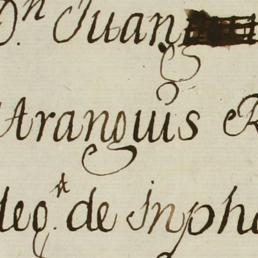 Dn Juan
Aranguis R
deg.t de Inpha